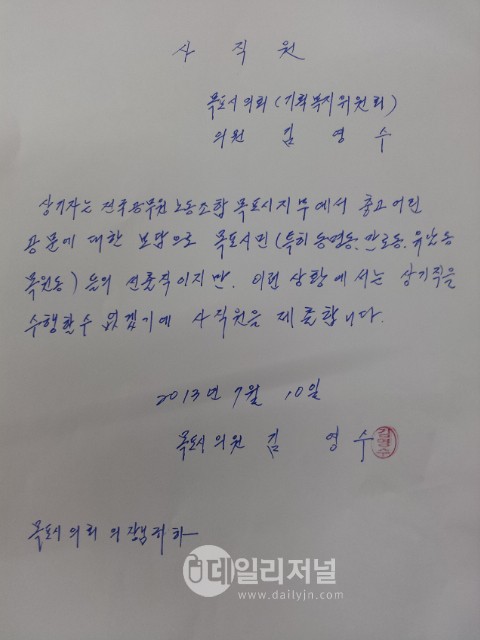 사 직 원
목포시의회 (기획복지위원회)
의원 김 영 수
상기자는 전국공무원노동조합 목포시지부에서 충고어린
공문에 대한 보답으로 목포시민 (특히 용당동. 만호동. 유달동
목원동) 들의 선출직이지만. 이런 상황에서는 상기직을
수행할수 없겠기에 사직원을 제출합니다.
2013년 7월 10일
목포시의원 김 영 수
김영수
목포시의회 의장님 귀하
데일리저널
www.dailyjn.com